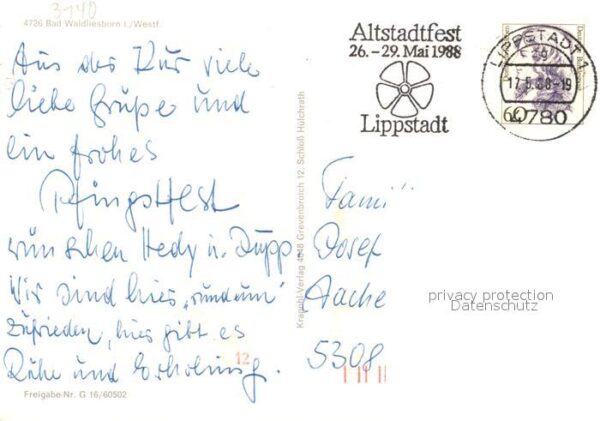 3140
4726 Bad Waldliesborn i./Westf.
Aus der Kur viele
liebe Grüße und
ein frohes
Pfingstfest
wünschen Hedy u. Jupp.
Wir sind hier „rundum"
zufrieden, hier gibt es
Ruhe und Erholung.
12
Freigabe-Nr. G 16/60502
Krapohl-Verlag 4048 Grevenbroich 12, Schloß Hülchrath
Altstadtfest
26.–29. Mai 1988
Lippstadt
LIPPSTADT 1
17.5.88-19
4780
60
Fami
Josef
Aache
5308
privacy protection
Datenschutz